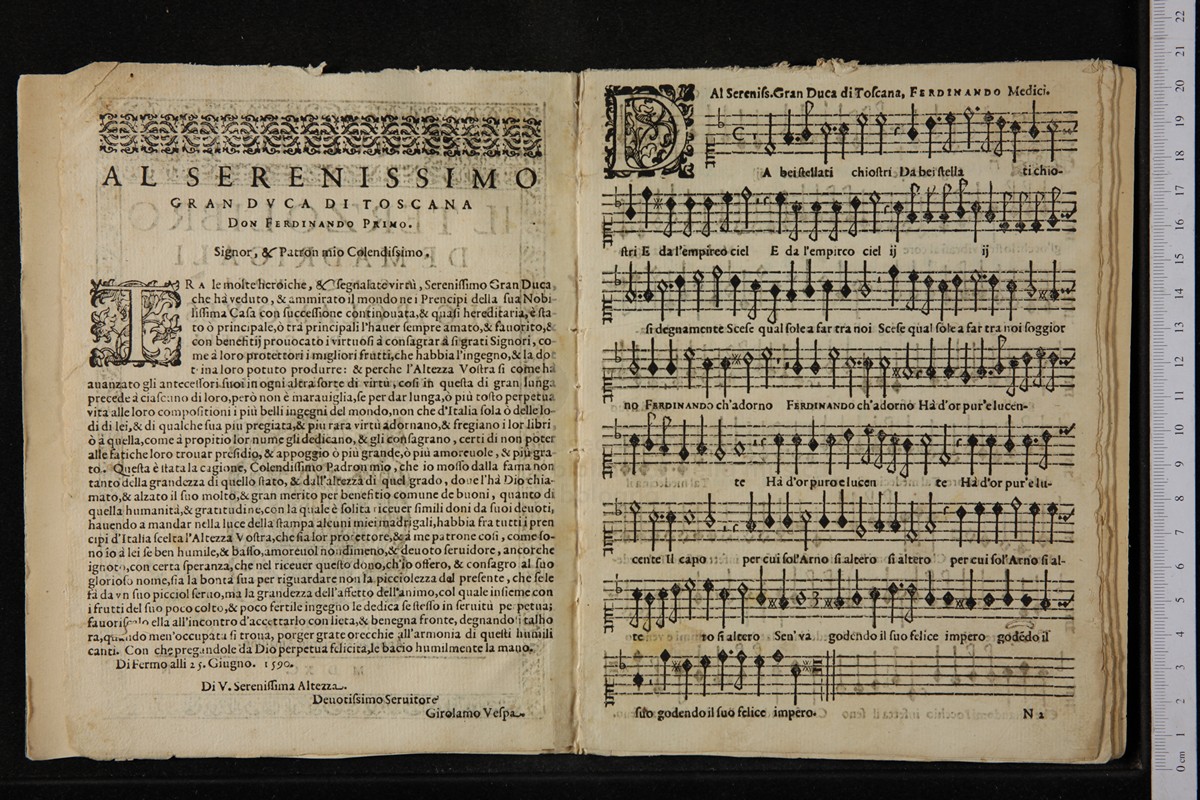 AL SERENISSIMO
GRAN DVCA DI TOSCANA
DON FERDINANDO PRIMO.
Signor, & Patron mio Colendissimo.
TRA le molte heroiche, & segnalate virtù, Serenissimo Gran Duca
che hà veduto, & ammirato il mondo nei Prencipi della sua Nobi
lissima Casa con successione continouata, & quasi hereditaria, è sta
to ò principale, ò trà principali l'hauer sempre amato, & fauorito, &
con benefitij prouocato i virtuosi à consagrar à si grati Signori, co
me à loro protettori i migliori frutti, che habbia l'ingegno, & la dot
t ina loro potuto produrre: & perche l'Altezza Vostra si come ha
auanzato gli antecessori suoi in ogni altra sorte di virtù, cosi in questa di gran lunga
precede à ciascuno di loro, però non è marauiglia, se per dar lunga, ò più tosto perpetua
vita alle loro compositioni i più belli ingegni del mondo, non che d'Italia sola ò delle lo-
di di lei, & di qualche sua più pregiata, & più rara virtù adornano, & fregiano i lor libri
ò à quella, come à propitio lor nume gli dedicano, & gli consagrano, certi di non poter
alle fatiche loro trouar presidio, & appoggio ò più grande, ò più amoreuole, & più gra-
to. Questa è stata la cagione, Colendissimo Padron mio, che io mosso dalla fama non
tanto della grandezza di quello stato, & dall'altezza di quel grado, doue l'hà Dio chia-
mato, & alzato il suo molto, & gran merito per benefitio comune de buoni, quanto di
quella humanità, & gratitudine, con la quale è solita riceuer simili doni da suoi deuoti,
hauendo a mandar nella luce della stampa alcuni miei madrigali, habbia fra tutti i pren
cipi d'Italia scelta l'Altezza Vostra, che sia lor protettore, & à me patrone cosi, come so-
no io à lei se ben humile, & basso, amoreuol nondimeno, & deuoto seruidore, ancorche
ignoto, con certa speranza, che nel riceuer questo dono, ch'io offero, & consagro al suo
glorioso nome, sia la bontà sua per riguardare non la picciolezza del presente, che se le
fà da vn suo picciol seruo, ma la grandezza dell'affetto dell'animo, col quale insieme con
i frutti del suo poco colto, & poco fertile ingegno le dedica se stesso in seruitù perpetua;
fauoriscalo ella all'incontro d'accettarlo con lieta, & benegna fronte, degnandosi talho
ra, quando men'occupata si troua, porger grate orecchie all'armonia di questi humili
canti. Con che pregandole da Dio perpetua felicità, le bacio humilmente la mano.
Di Fermo alli 25. Giugno. 1590.
Di V. Serenissima Altezza.
Deuotissimo Seruitore
Girolamo Vespa.
Al Sereniss. Gran Duca di Toscana, FERDINANDO Medici.
DA bei stellati chiostri Da bei stella ti chio-
stri E da l'empireo ciel E da l'empireo ciel ij ij
si degnamente Scese qual sole a far tra noi Scese qual sole a far tra noi soggior
no FERDINANDO ch'adorno FERDINANDO ch'adorno Hà d'or pur'e lucen-
te Hà d'or puro e lucen te Hà d'or pur'e lu-
cente Il capo per cui sol'Arno si altero si altero per cui sol'Arno si al-
te ro si altero Sen' va godendo il suo felice impero godēdo il
suo godendo il suo felice impero.
N 2